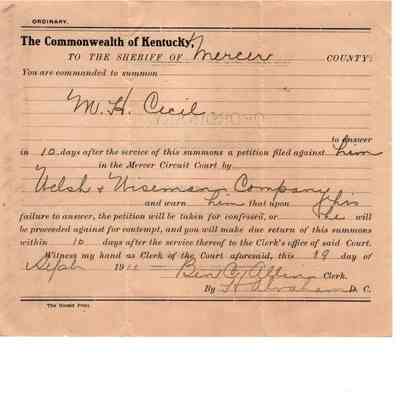 ORDINARY.
The Commonwealth of Kentucky,
TO THE SHERIFF OF Mercer COUNTY:
You are commanded to summon
M. H. Cecil
to answer
in 10 days after the service of this summons a petition filed against him
in the Mercer Circuit Court by
Welsh & Wiseman Company
and warn him that upon his
failure to answer, the petition will be taken for confessed, or he will
be proceeded against for contempt, and you will make due return of this summons
within 10 days after the service thereof to the Clerk's office of said Court.
Witness my hand as Clerk of the Court aforesaid, this 19 day of
Sept 19 Ben C. Allin Clerk.
By Abraham D. C.
The Herald Print.